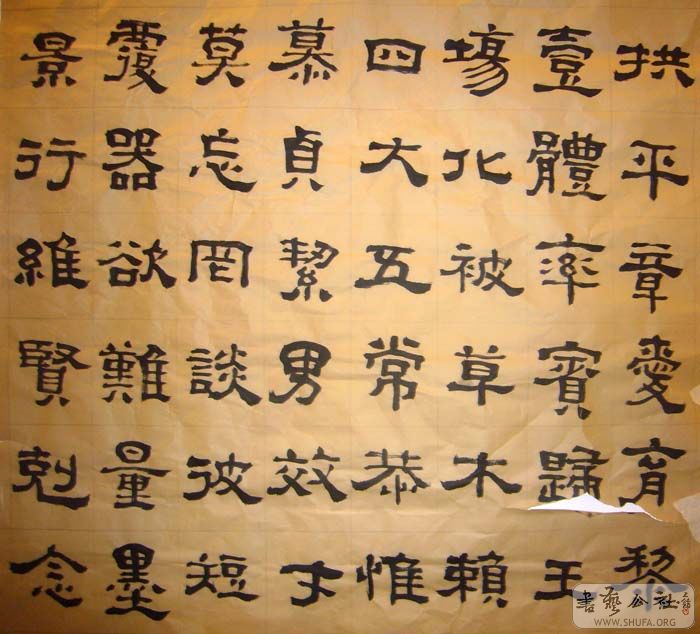 拱平章愛育黎
壹體率賓歸王
場化被草木賴
四大五常恭惟
慕貞絜男效才
莫忘罔談彼短
覆器欲難量墨
景行維賢剋念
書藝公社
WWW.SHUFA.ORG